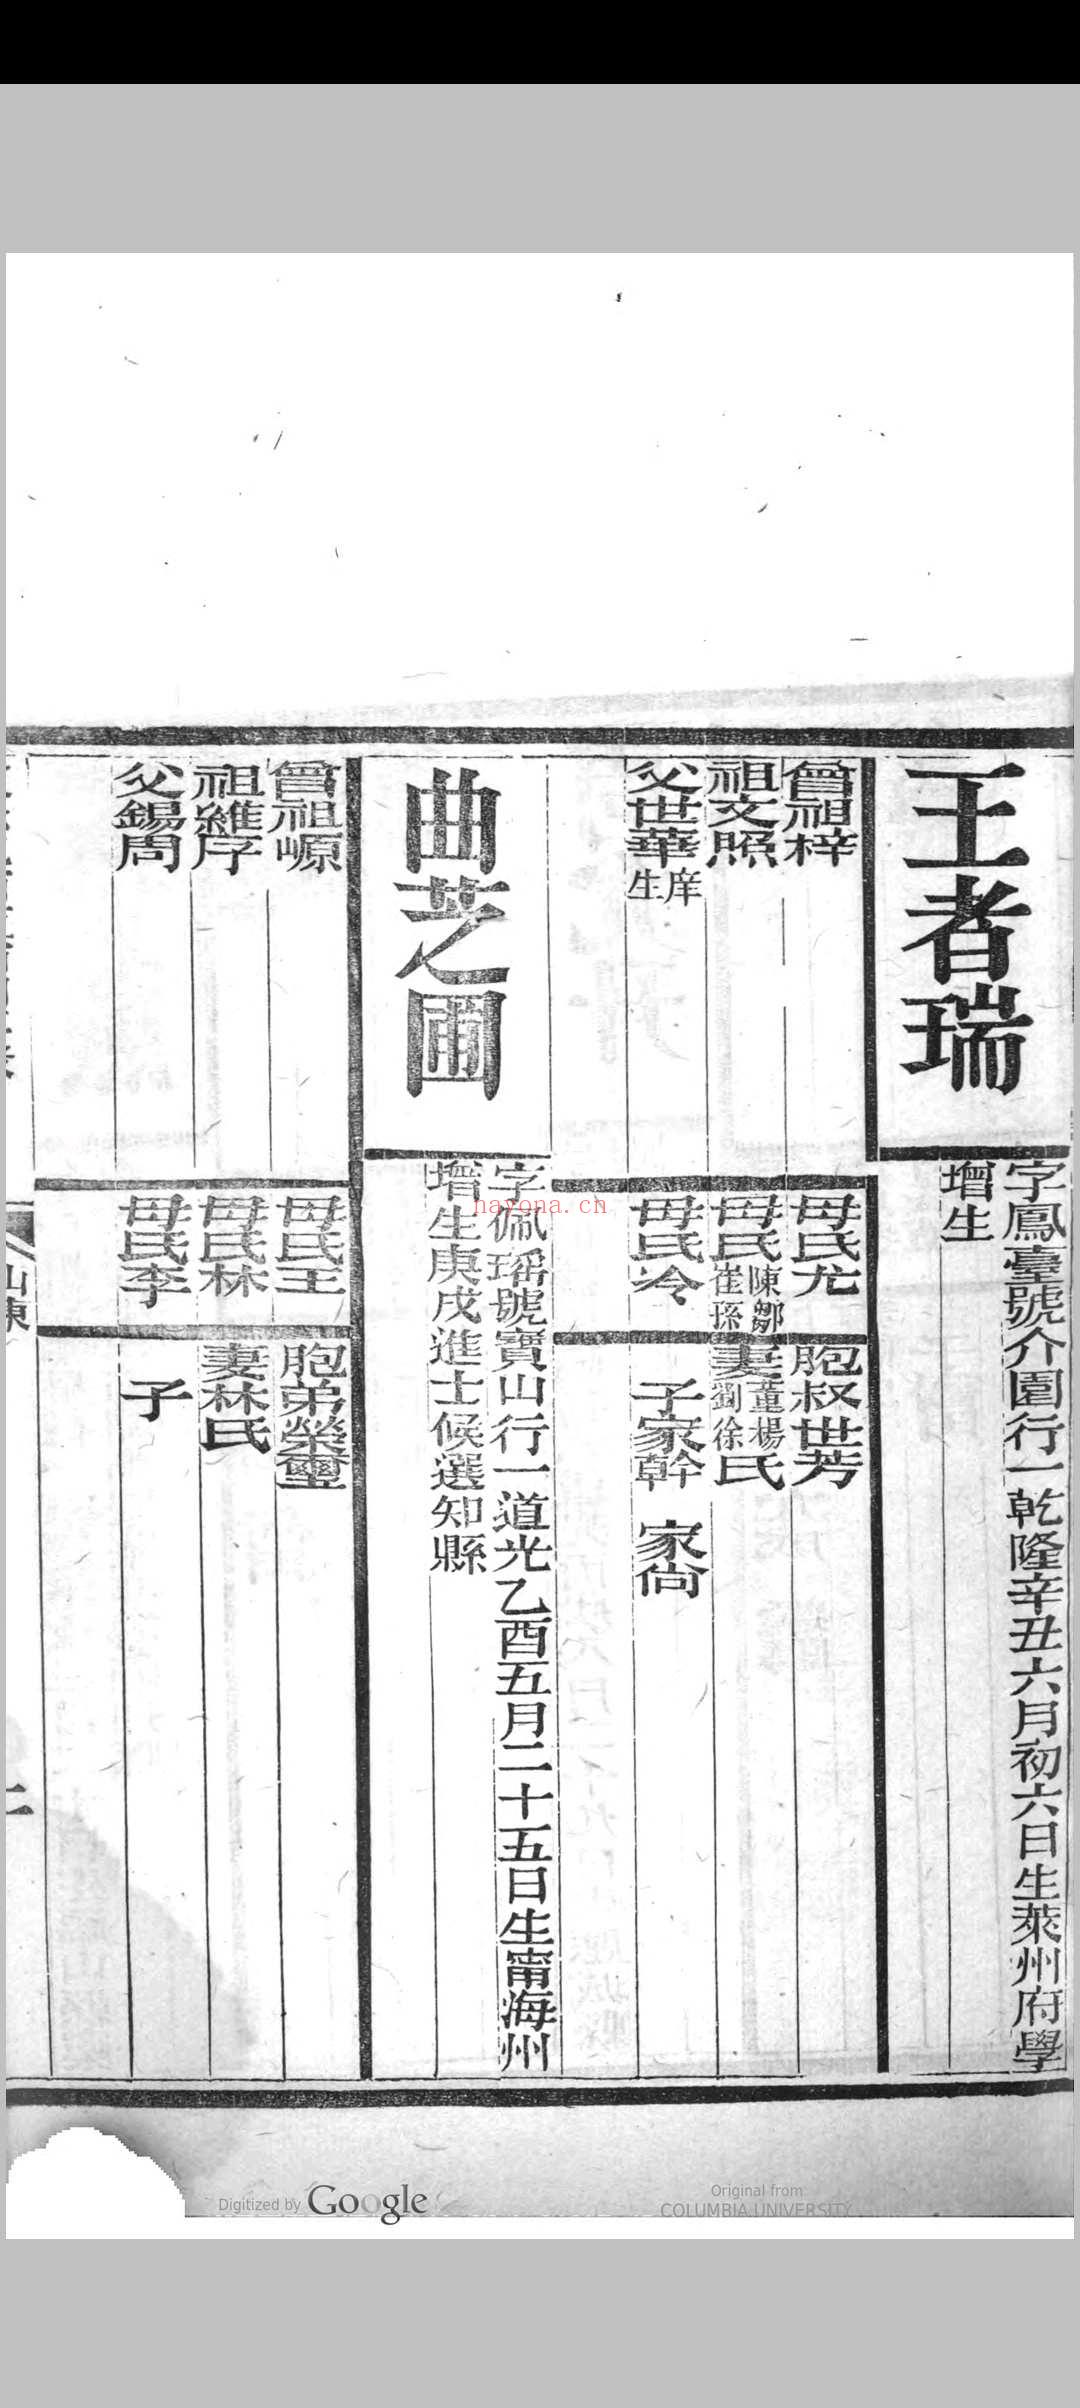 王者瑞
字鳳臺號介園行一乾隆辛丑六月初六日生萊州府學
增生
曾祖梓
祖文照
父世華庠生
母氏尤
母氏陳鄒崔孫
母氏冷
胞叔世芳
妻董楊劉徐氏
子家幹 家尙
曲芝圃
字佩瑤號寶山行一道光乙酉五月二十五日生甯海州
增生庚戌進士候選知縣
曾祖嫄
祖維序
父錫周
母氏王
母氏林
母氏李
胞弟榮璽
妻林氏
子
山東
nayona.cn
Digitized by Google
Original from
COLUMBIA UNIVERSITY